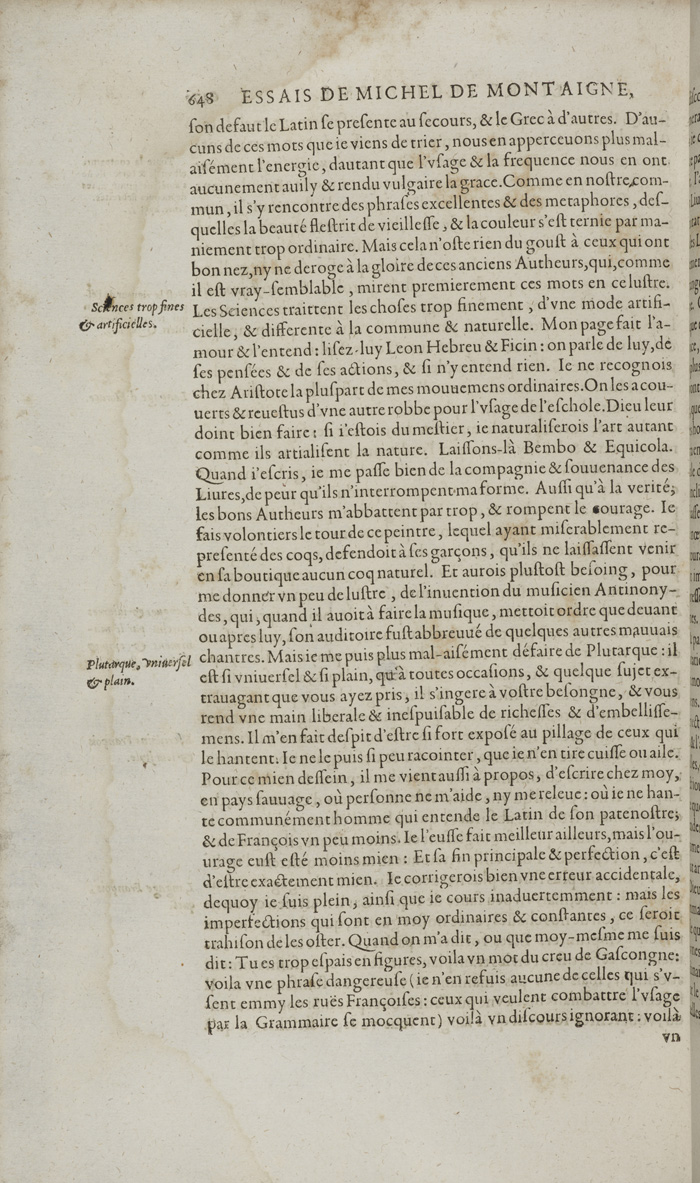 648 ESSAIS DE MICHEL DE MONTAIGNE,
ſon defaut le Latin ſe preſente au ſecours, & le Grec à d'autres. D'au-
cuns de ces mots que ie viens de trier, nous en apperceuons plus mal-
aiſément l'energie, dautant que l'vſage & la frequence nous en ont
aucunement auily & rendu vulgaire la grace. Comme en noſtre com-
mun, il s'y rencontre des phraſes excellentes & des metaphores, deſ-
quelles la beauté fleſtrit de vieilleſſe, & la couleur s'eſt ternie par ma-
niement trop ordinaire. Mais cela n'oſte rien du gouſt à ceux qui ont
bon nez, ny ne deroge à la gloire de ces anciens Autheurs, qui, comme
il eſt vray-ſemblable, mirent premierement ces mots en ce luſtre.
Sciences trop fines
& artificielles.
Les Sciences traittent les choſes trop finement, d'vne mode artifi-
cielle, & differente à la commune & naturelle. Mon page fait l'a-
mour & l'entend: liſez-luy Leon Hebreu & Ficin: on parle de luy, de
ſes penſées & de ſes actions, & ſi n'y entend rien. Ie ne recognois
chez Ariſtote la pluſpart de mes mouuemens ordinaires. On les a cou-
uerts & reueſtus d'vne autre robbe pour l'vſage de l'eſchole. Dieu leur
doint bien faire: ſi i'eſtois du meſtier, ie naturaliſerois l'art autant
comme ils artialiſent la nature. Laiſſons-là Bembo & Equicola.
Quand i'eſcris, ie me paſſe bien de la compagnie & ſouuenance des
Liures, de peur qu'ils n'interrompent ma forme. Auſſi qu'à la verité,
les bons Autheurs m'abbattent par trop, & rompent le courage. Ie
fais volontiers le tour de ce peintre, lequel ayant miſerablement re-
preſenté des coqs, defendoit à ſes garçons, qu'ils ne laiſſaſſent venir
en ſa boutique aucun coq naturel. Et aurois pluſtoſt beſoing, pour
me donner vn peu de luſtre, de l'inuention du muſicien Antinony-
des, qui, quand il auoit à faire la muſique, mettoit ordre que deuant
ou apres luy, ſon auditoire fuſt abbreuué de quelques autres mauuais
Plutarque, vniuerſel
& plain.
chantres. Mais ie me puis plus mal-aiſément défaire de Plutarque: il
eſt ſi vniuerſel & ſi plain, qu'à toutes occaſions, & quelque ſujet ex-
trauagant que vous ayez pris, il s'ingere à voſtre beſongne, & vous
rend vne main liberale & ineſpuiſable de richeſſes & d'embelliſſe-
mens. Il m'en fait deſpit d'eſtre ſi fort expoſé au pillage de ceux qui
le hantent. Ie ne le puis ſi peu racointer, que ie n'en tire cuiſſe ou aile.
Pour ce mien deſſein, il me vient auſſi à propos, d'eſcrire chez moy,
en pays ſauuage, où perſonne ne m'aide, ny me releue: où ie ne han-
te communément homme qui entende le Latin de ſon patenoſtre;
& de François vn peu moins. Ie l'euſſe fait meilleur ailleurs, mais l'ou-
urage euſt eſté moins mien: Et ſa fin principale & perfection, c'eſt
d'eſtre exactement mien. Ie corrigerois bien vne erreur accidentale,
dequoy ie ſuis plein, ainſi que ie cours inaduertemment: mais les
imperfections qui ſont en moy ordinaires & conſtantes, ce ſeroit
trahiſon de les oſter. Quand on m'a dit, ou que moy-meſme me ſuis
dit: Tu es trop eſpais en figures, voila vn mot du creu de Gaſcongne:
voila vne phraſe dangereuſe (ie n'en refuis aucune de celles qui s'v-
ſent emmy les ruës Françoiſes: ceux qui veulent combattre l'vſage
par la Grammaire ſe mocquent) voilà vn diſcours ignorant: voilà
vn